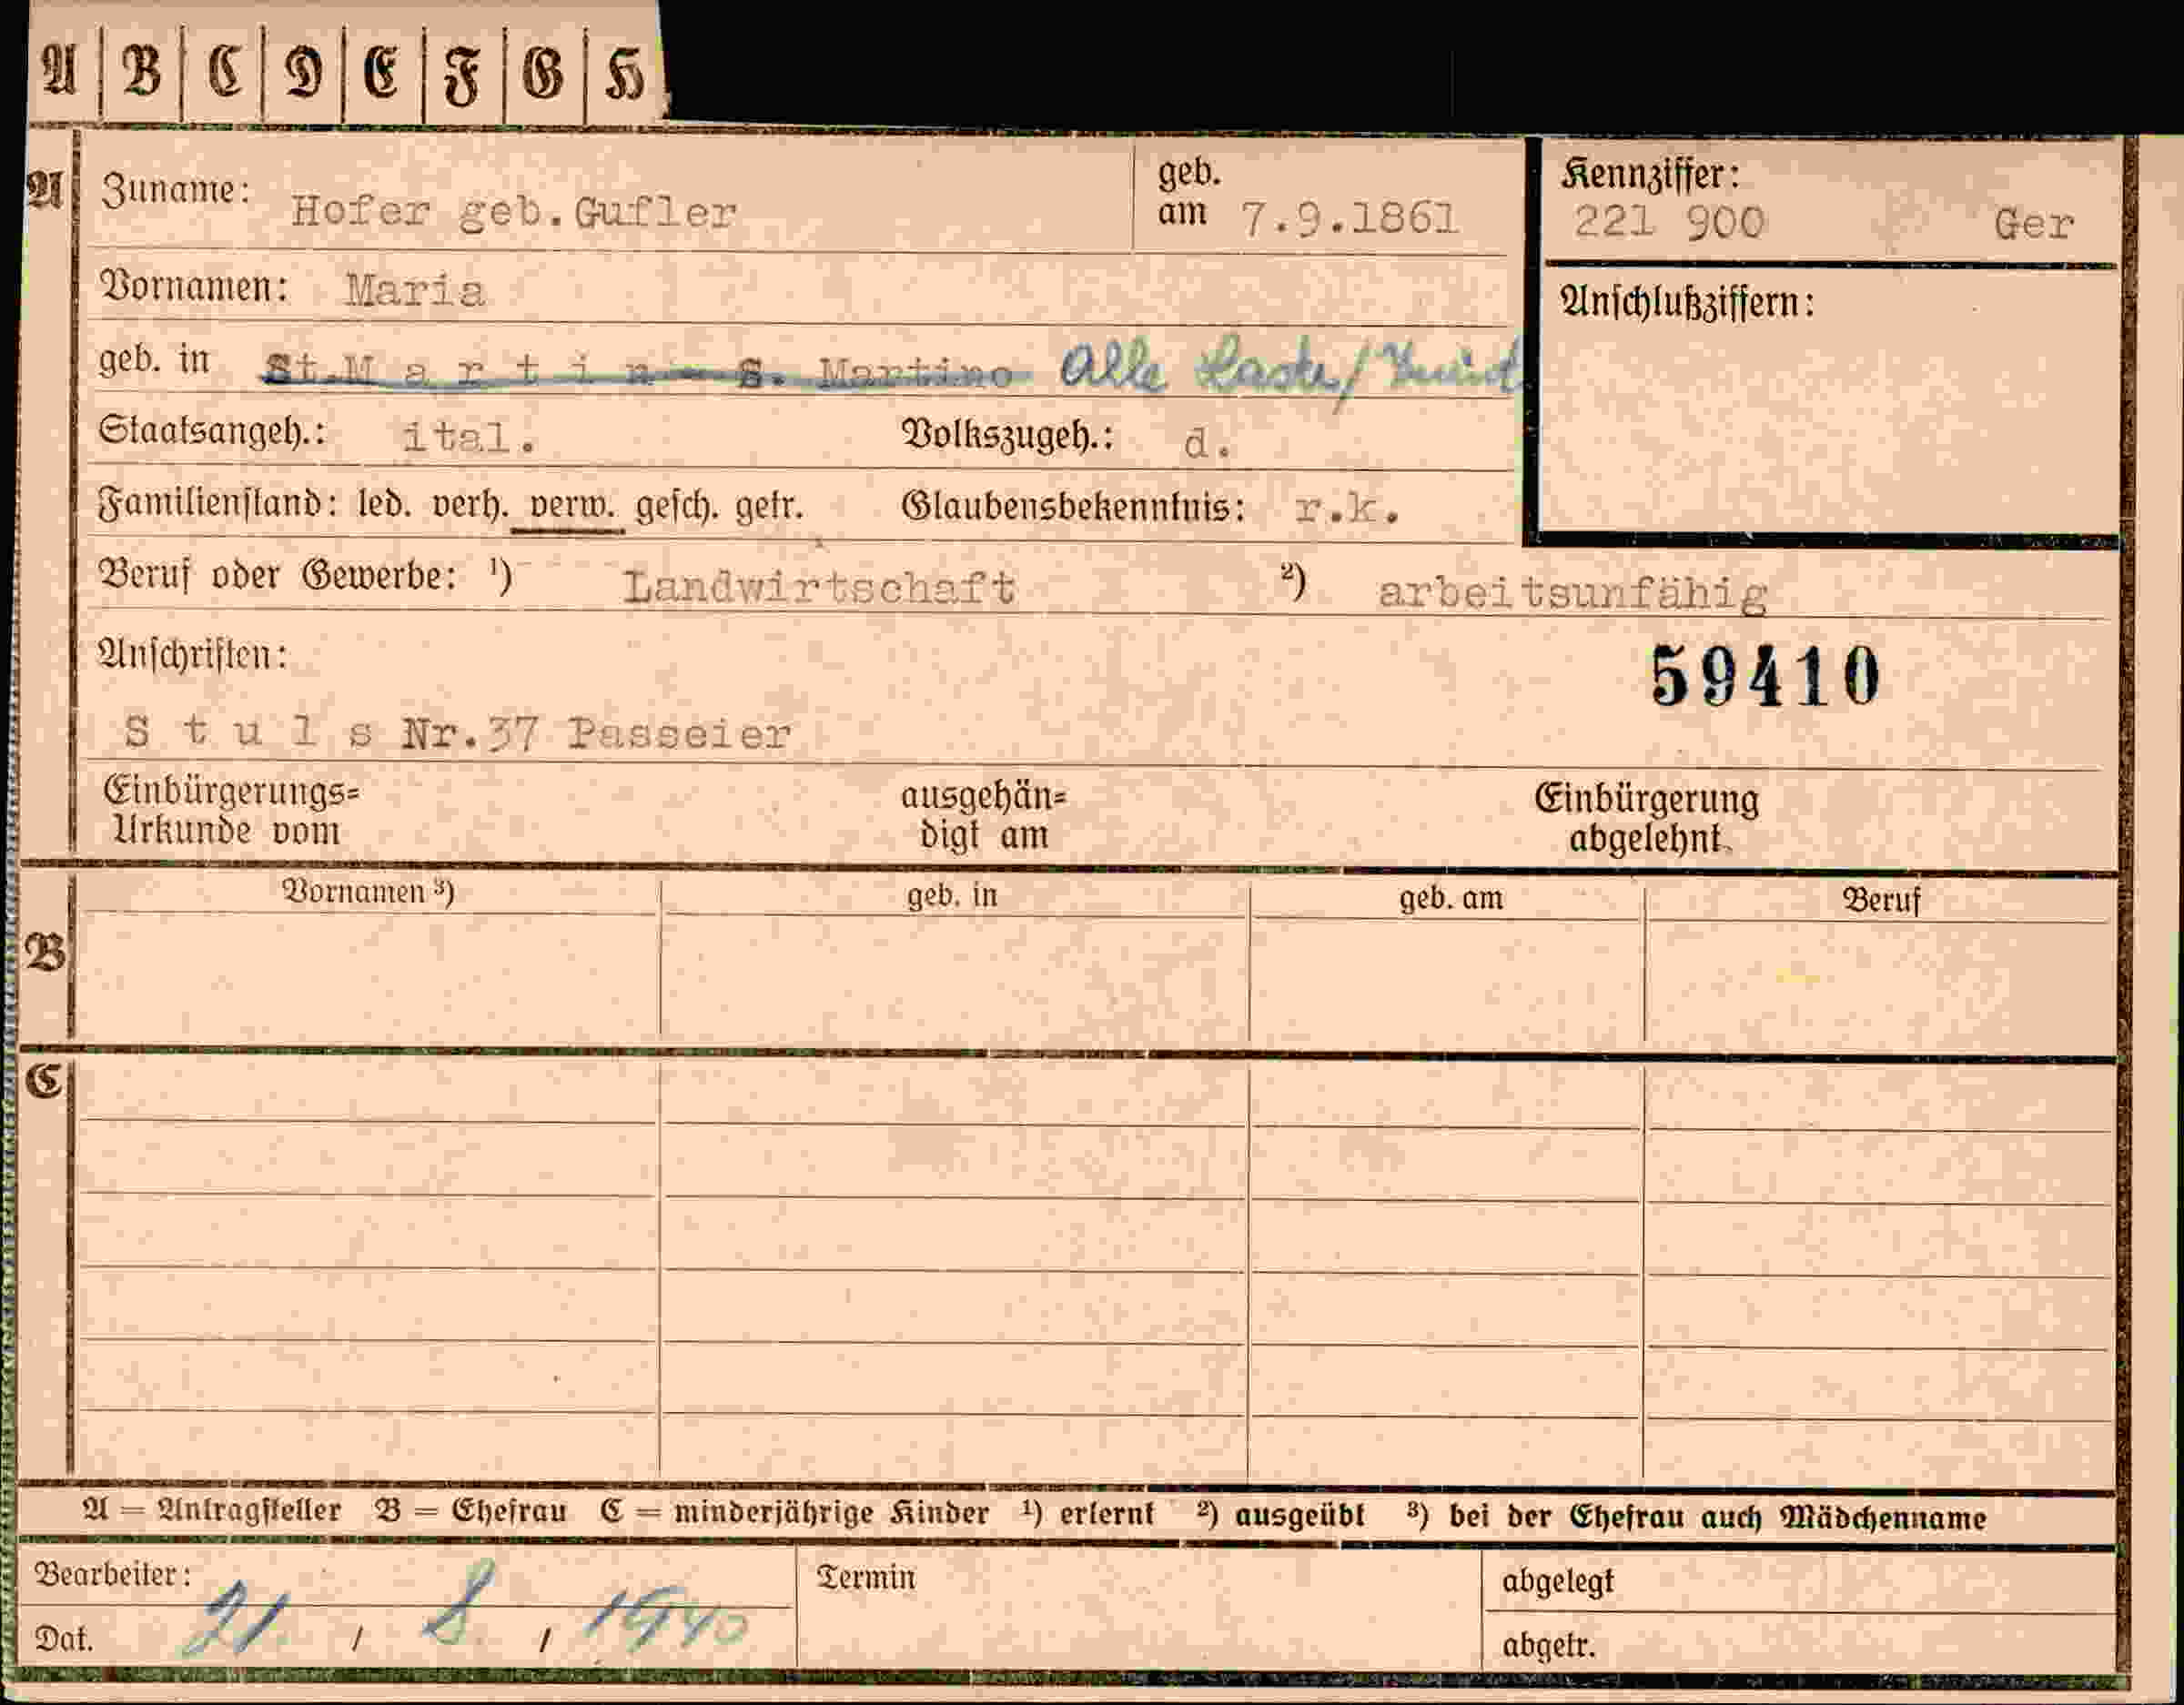 A | B | C | D | E | F | G | H
A
Zuname: Hofer geb.Gufler
geb. am 7.9.1861
Kennziffer:
221 900 Ger
Vornamen: Maria
Anschlußziffern:
geb. in St.M a r t i n - S. Martino Alle
Staatsangeh.: ital. Volkszugeh.: d.
Familienstand: led. verh. verw. gesch. getr. Glaubensbekenntnis: r.k.
Beruf oder Gewerbe: ¹) Landwirtschaft ²) arbeitsunfähig
Anschriften:
59410
S t u l s Nr.37 Passeier
Einbürgerungs= ausgehän= Einbürgerung
Urkunde vom digt am abgelehnt
B
Vornamen ³) geb. in geb. am Beruf
C
A = Antragsteller B = Ehefrau C = minderjährige Kinder ¹) erlernt ²) ausgeübt ³) bei der Ehefrau auch Mädchenname
Bearbeiter: Termin abgelegt
Dat. 21 / 8 / 1940 abgetr.